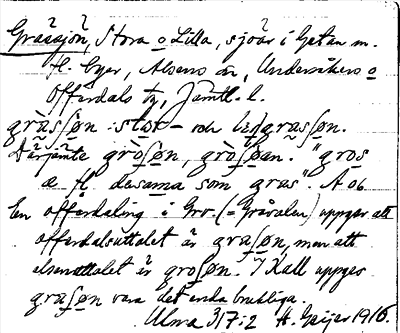 Gråssjön, Stora o Lilla, sjöar i Getan m.
fl. byar, Alsens sn, Undersåkers o
Offerdals tg, Jämtl. l.
gràsʃøn: stor- och lisgrasʃøn.
Därjämte gròʃøn, gròʃøan. "gros
æ fl. desama som gras". A ob
En offerdaling i Grv. (= Gråvalen) uppger att
offerdalsuttalet är graʃøn, men att
alsenuttalet är groʃøn. I Kall uppger
graʃøn vara det enda brukliga.
Ulma 317:2 H. Geijer 1916.